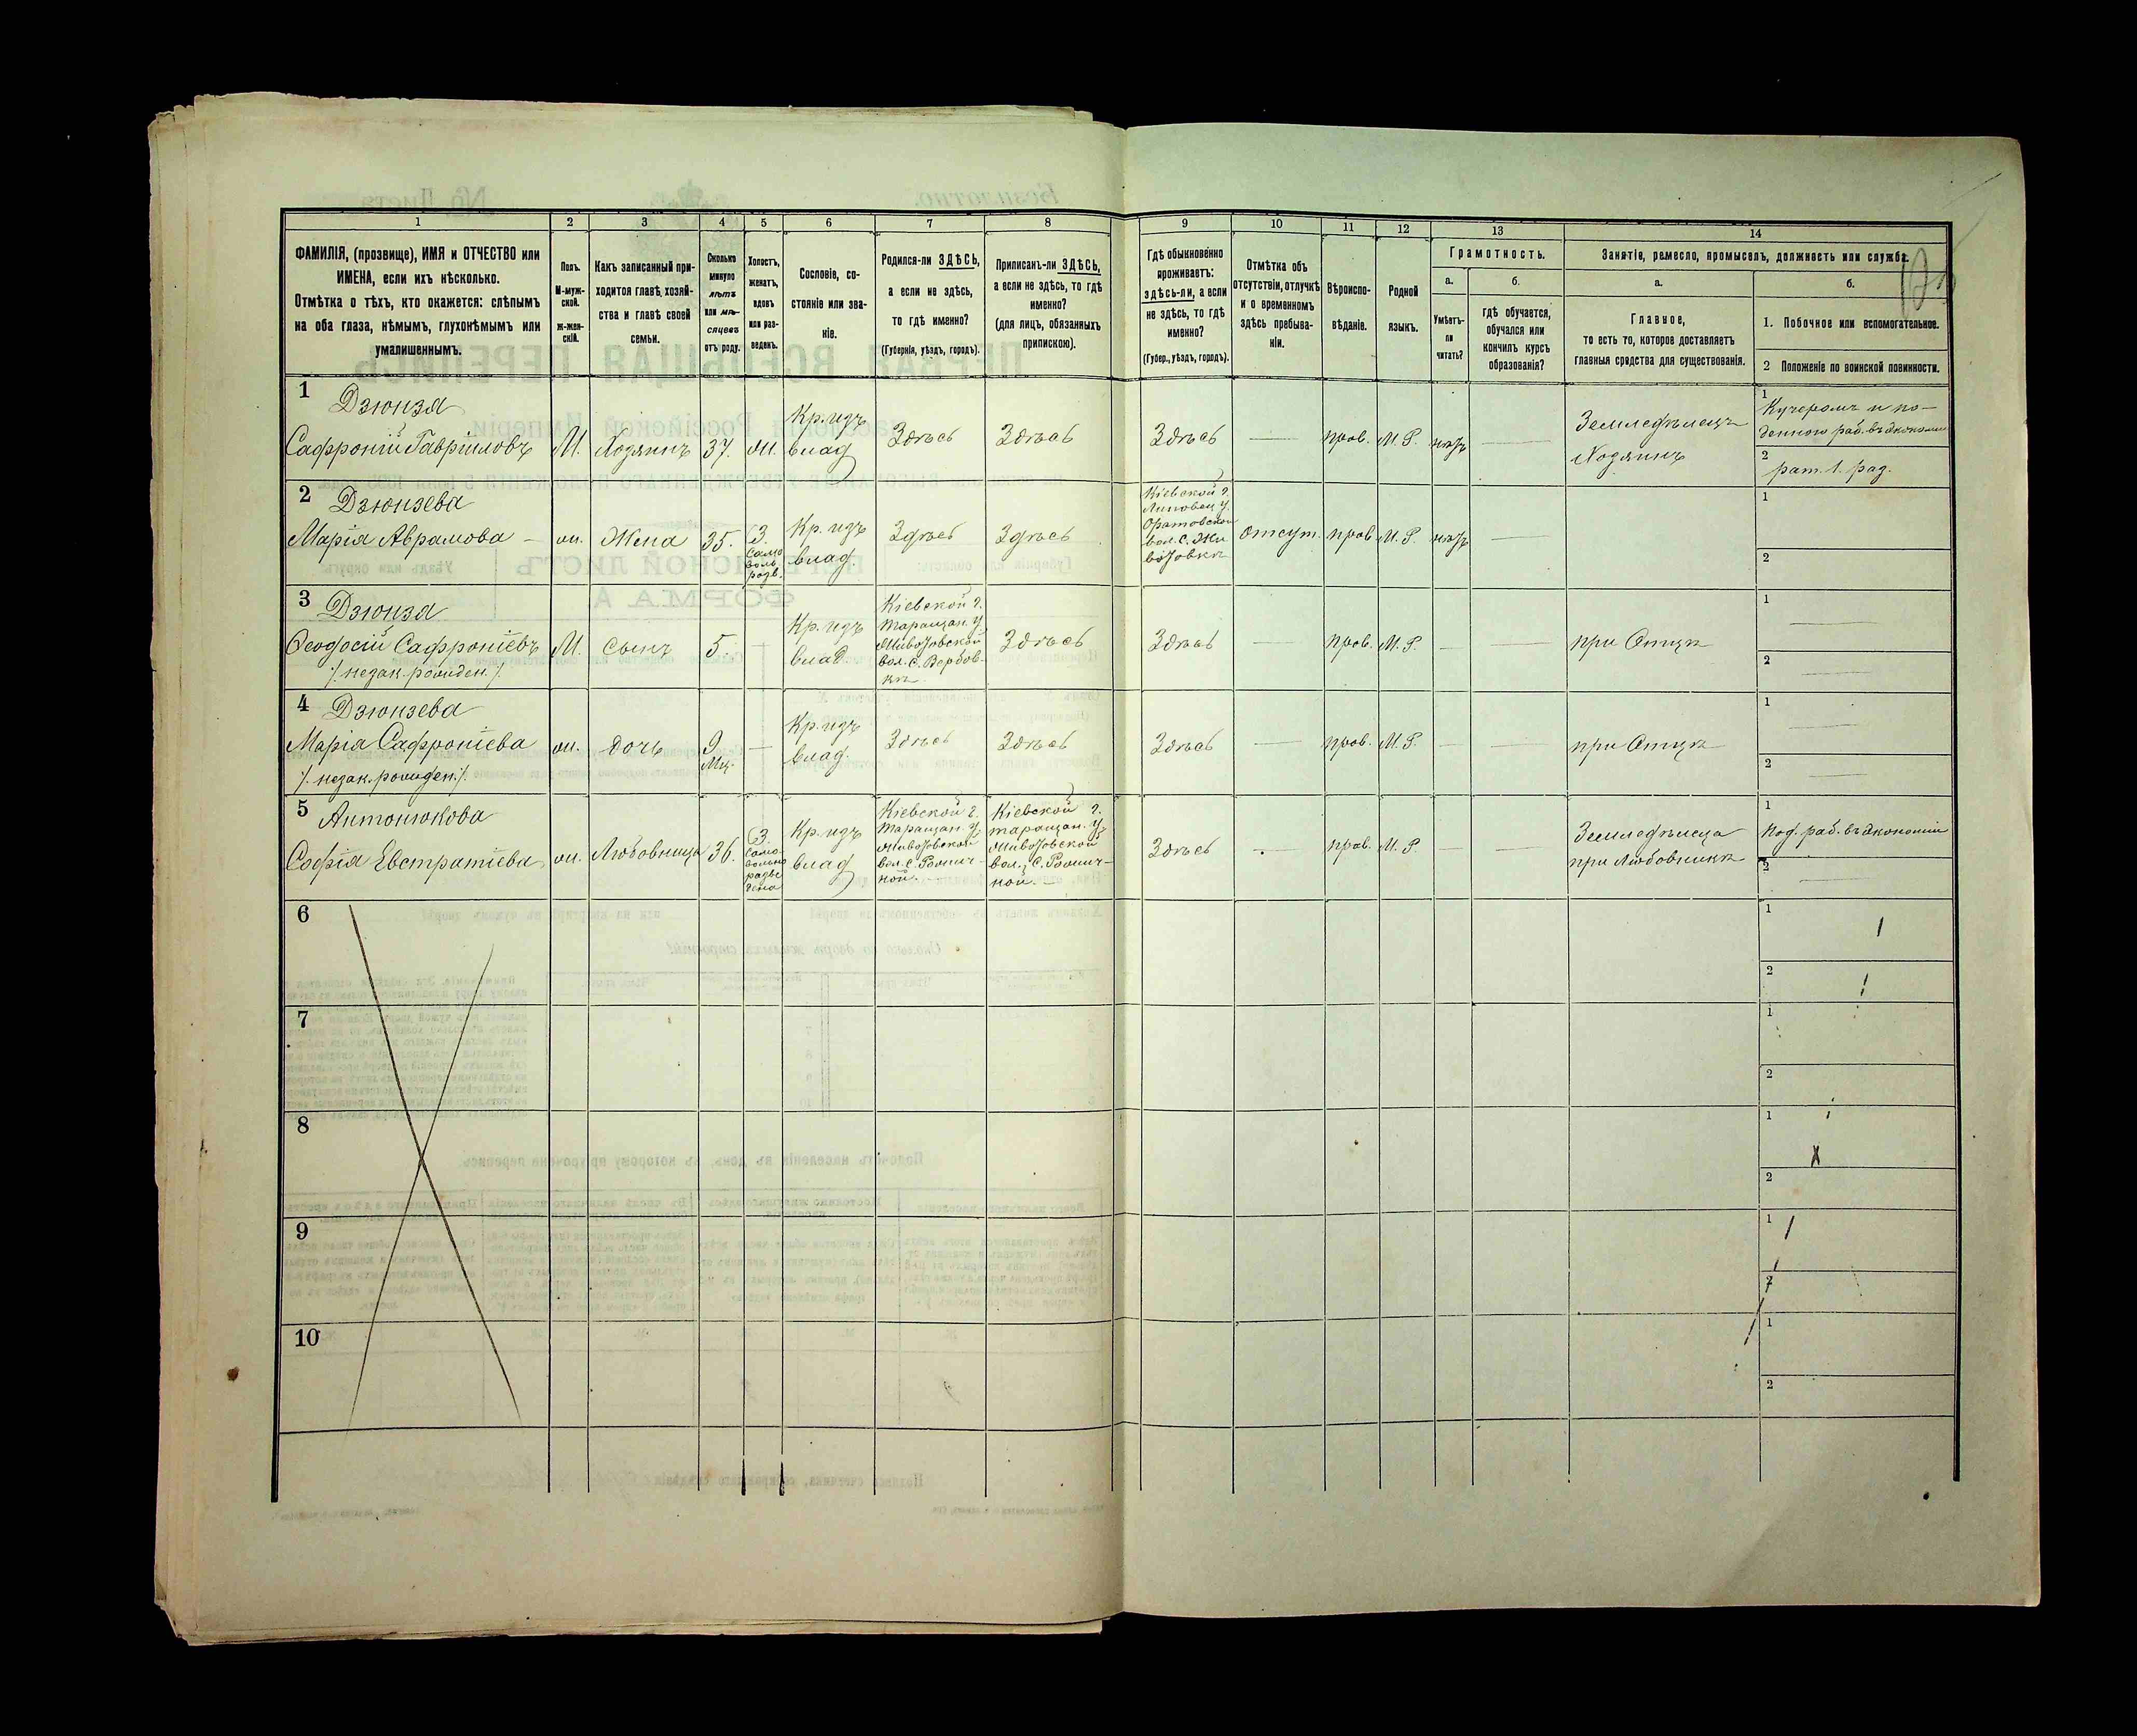 1 2 3 4 5 6 7 8 9 10 11 12 13 14
ФАМИЛІЯ, (прозвище), ИМЯ и ОТЧЕСТВО или
ИМЕНА, если ихъ нѣсколько.
Отмѣтка о тѣхъ, кто окажется: слѣпымъ
на оба глаза, нѣмымъ, глухонѣмымъ или
умалишеннымъ.
Полъ.
М-муж-
ской.
ж-жен-
скій.
Какъ записанный при-
ходится главѣ хозяй-
ства и главѣ своей
семьи.
Сколько
минуло
лѣтъ
или мѣ-
сяцевъ
отъ роду.
Холостъ,
женатъ,
вдовъ
или раз-
веденъ.
Сословіе, со-
стояніе или зва-
ніе.
Родился-ли ЗДѢСЬ,
а если не здѣсь,
то гдѣ именно?
(Губернія, уѣздъ, городъ).
Приписанъ-ли ЗДѢСЬ,
а если не здѣсь, то гдѣ
именно?
(для лицъ, обязанныхъ
припискою).
Гдѣ обыкновенно
проживаетъ:
здѣсь-ли, а если
не здѣсь, то гдѣ
именно?
(Губер., уѣздъ, городъ).
Отмѣтка объ
отсутствіи, отлучкѣ
и о временномъ
здѣсь пребыва-
ніи.
Вѣроиспо-
вѣданіе.
Родной
языкъ.
Грамотность.
а.
Умѣетъ-
ли
читать?
б.
гдѣ обучается,
обучался или
кончилъ курсъ
образованія?
Занятіе, ремесло, промыселъ, должность или служба.
а.
Главное,
то есть то, которое доставляетъ
главныя средства для существованія.
б.
1. Побочное или вспомогательное.
2 Положеніе по воинской повинности.
1 Дзюнзя
Сафроній Гавриловъ
М.
Хозяинъ
37.
ж.
Кр. изъ
влад
Здѣсь
Здѣсь
Здѣсь
—
прав.
М. Р.
нѣтъ
—
Земледѣлецъ
Хозяинъ
1
Кучеромъ и по-
денною раб. въ экономіи
2
рат. 1. раз.
2 Дзюнзева
Марія Аврамова –
ж.
Жена
35.
З.
само
воль.
розв.
Кр. изъ
влад.
Здѣсь
Здѣсь
Кіевской г.
Липовец у.
Оратовской
вол. с. Жи
вотовки
отсут.
прав
М. Р.
нѣтъ
—
1
2
3 Дзюнзя
Ѳеодосій Сафроніевъ
/. незак. рожден. /.
М.
сынъ
5.
—
Кр. изъ
влад.
Кіевской г.
Таращан. у.
Животовской
вол. с. Вербов-
ки
Здѣсь
Здѣсь
—
прав.
М. Р.
—
—
при Отцѣ
1 —
2 —
4 Дзюнзева
Марія Сафроніева
/. незак. рожден. /.
ж.
дочь
9
Мц.
—
Кр. изъ
влад.
Здѣсь
Здѣсь
Здѣсь
—
прав.
М. Р.
—
—
при Отцѣ
1 —
2 —
5 Антонюкова
Софія Евстратіева
ж.
Любовница
36.
З.
само-
вольно
разве
дена
Кр. изъ
влад
Кіевской г.
Таращан. у.
Животовской
вол. с.
Кіевской г.
таращан. у.
Животовской
вол., с.
Здѣсь
—
прав.
М. Р.
—
—
Земледѣлица
при Любовникѣ
1
Под. раб. въ экономіи
2 —
6
1
2
7
1
2
8
1
2
9
1
2
10
1
2